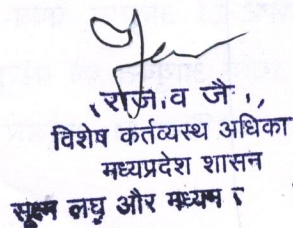 राजीव जै
विशेष कर्तव्यस्थ अधिका
मध्यप्रदेश शासन
सूक्ष्म लघु और मध्यम